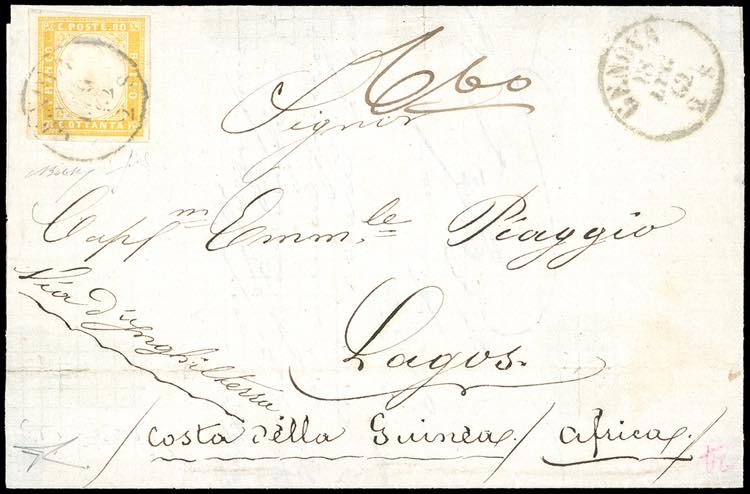 C. POSTE. 80
FRANCO
BOLLO
C. OTTANTA
GENOVA
18
62
660
Signor
Cap.m Emm.le Piaggio
Via d'Inghilterra
Lagos.
/ Costa della Guinea / Africa /